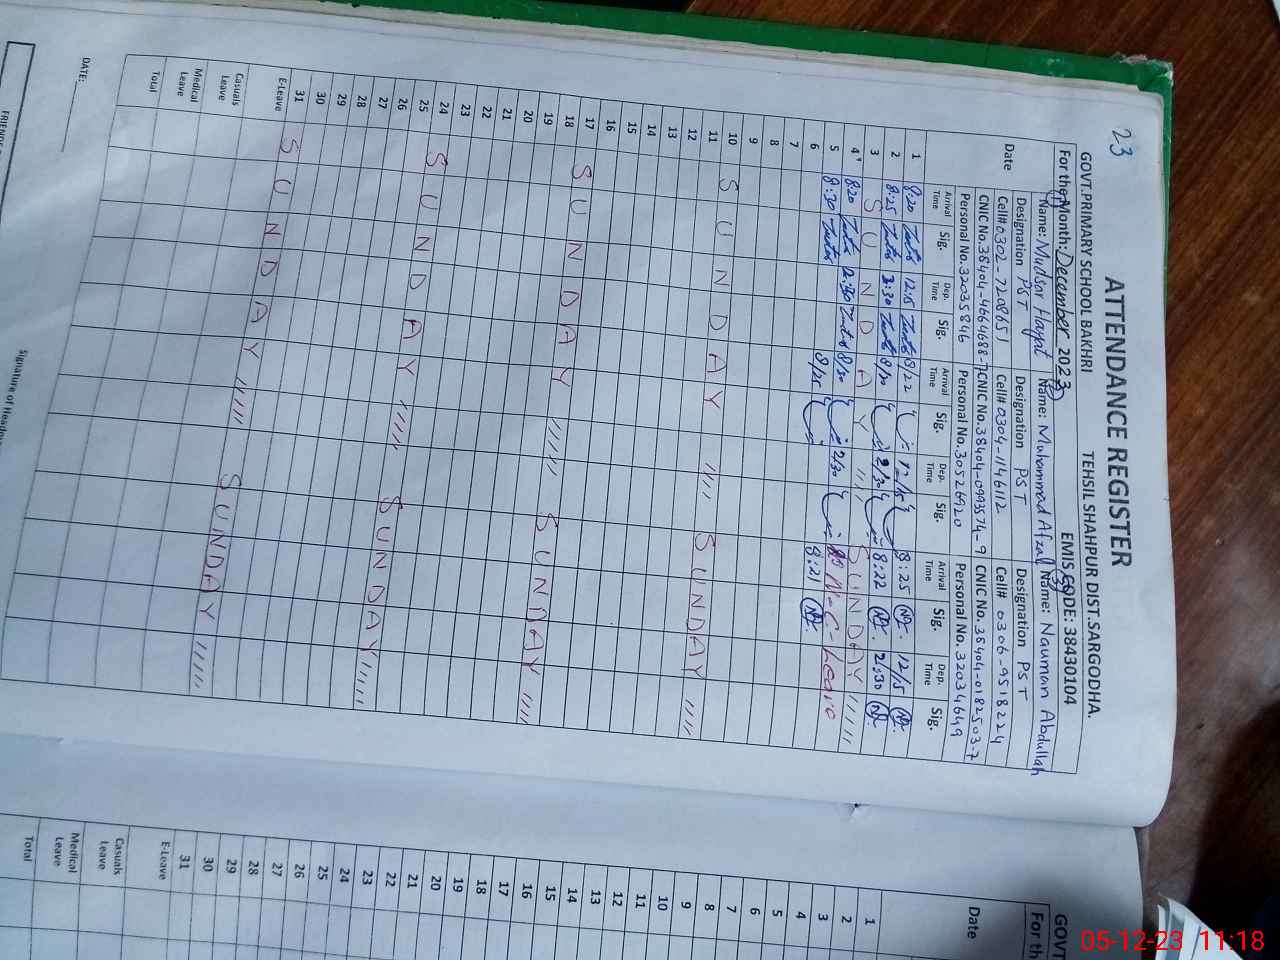 23
ATTENDANCE REGISTER
GOVT.PRIMARY SCHOOL BAKHRI TEHSIL SHAHPUR DIST.SARGODHA.
For the Month: December 2023 EMIS CODE: 38430104
Date
(1) Name: Mudsar Hayat (2) Name: Muhammad Afzal (3) Name: Nauman Abdullah
Designation PST Designation PST Designation PST
Cell# 0302-7208651 Cell# 0304-1146112 Cell# 0306-9518224
CNIC No. 38404-4664688-7 CNIC No. 38404-0993574-9 CNIC No. 38404-0182503-7
Personal No. 32035846 Personal No. 30526920 Personal No. 32034649
Arrival Time Sig. Dep. Time Sig. Arrival Time Sig. Dep. Time Sig. Arrival Time Sig. Dep. Time Sig.
1 8:20 12:15 8/22 12/15 8:25 12/15
2 8:25 2:30 8/30 2/30 8:22 2:30
3 SUNDAY SUNDAY
4 8:20 2:30 8/30 2/30 C-Leave
5 8:30 8/25 8:21
6
7
8
9
10 SUNDAY SUNDAY
11
12
13
14
15
16
17 SUNDAY SUNDAY
18
19
20
21
22
23
24 SUNDAY SUNDAY
25
26
27
28
29
30
31 SUNDAY SUNDAY
E-Leave
Casuals Leave
Medical Leave
Total
DATE:
Signature of Headm
GOVT
For th
Date
1
2
3
4
5
6
7
8
9
10
11
12
13
14
15
16
17
18
19
20
21
22
23
24
25
26
27
28
29
30
31
E-Leave
Casuals Leave
Medical Leave
Total
05-12-23 11:18